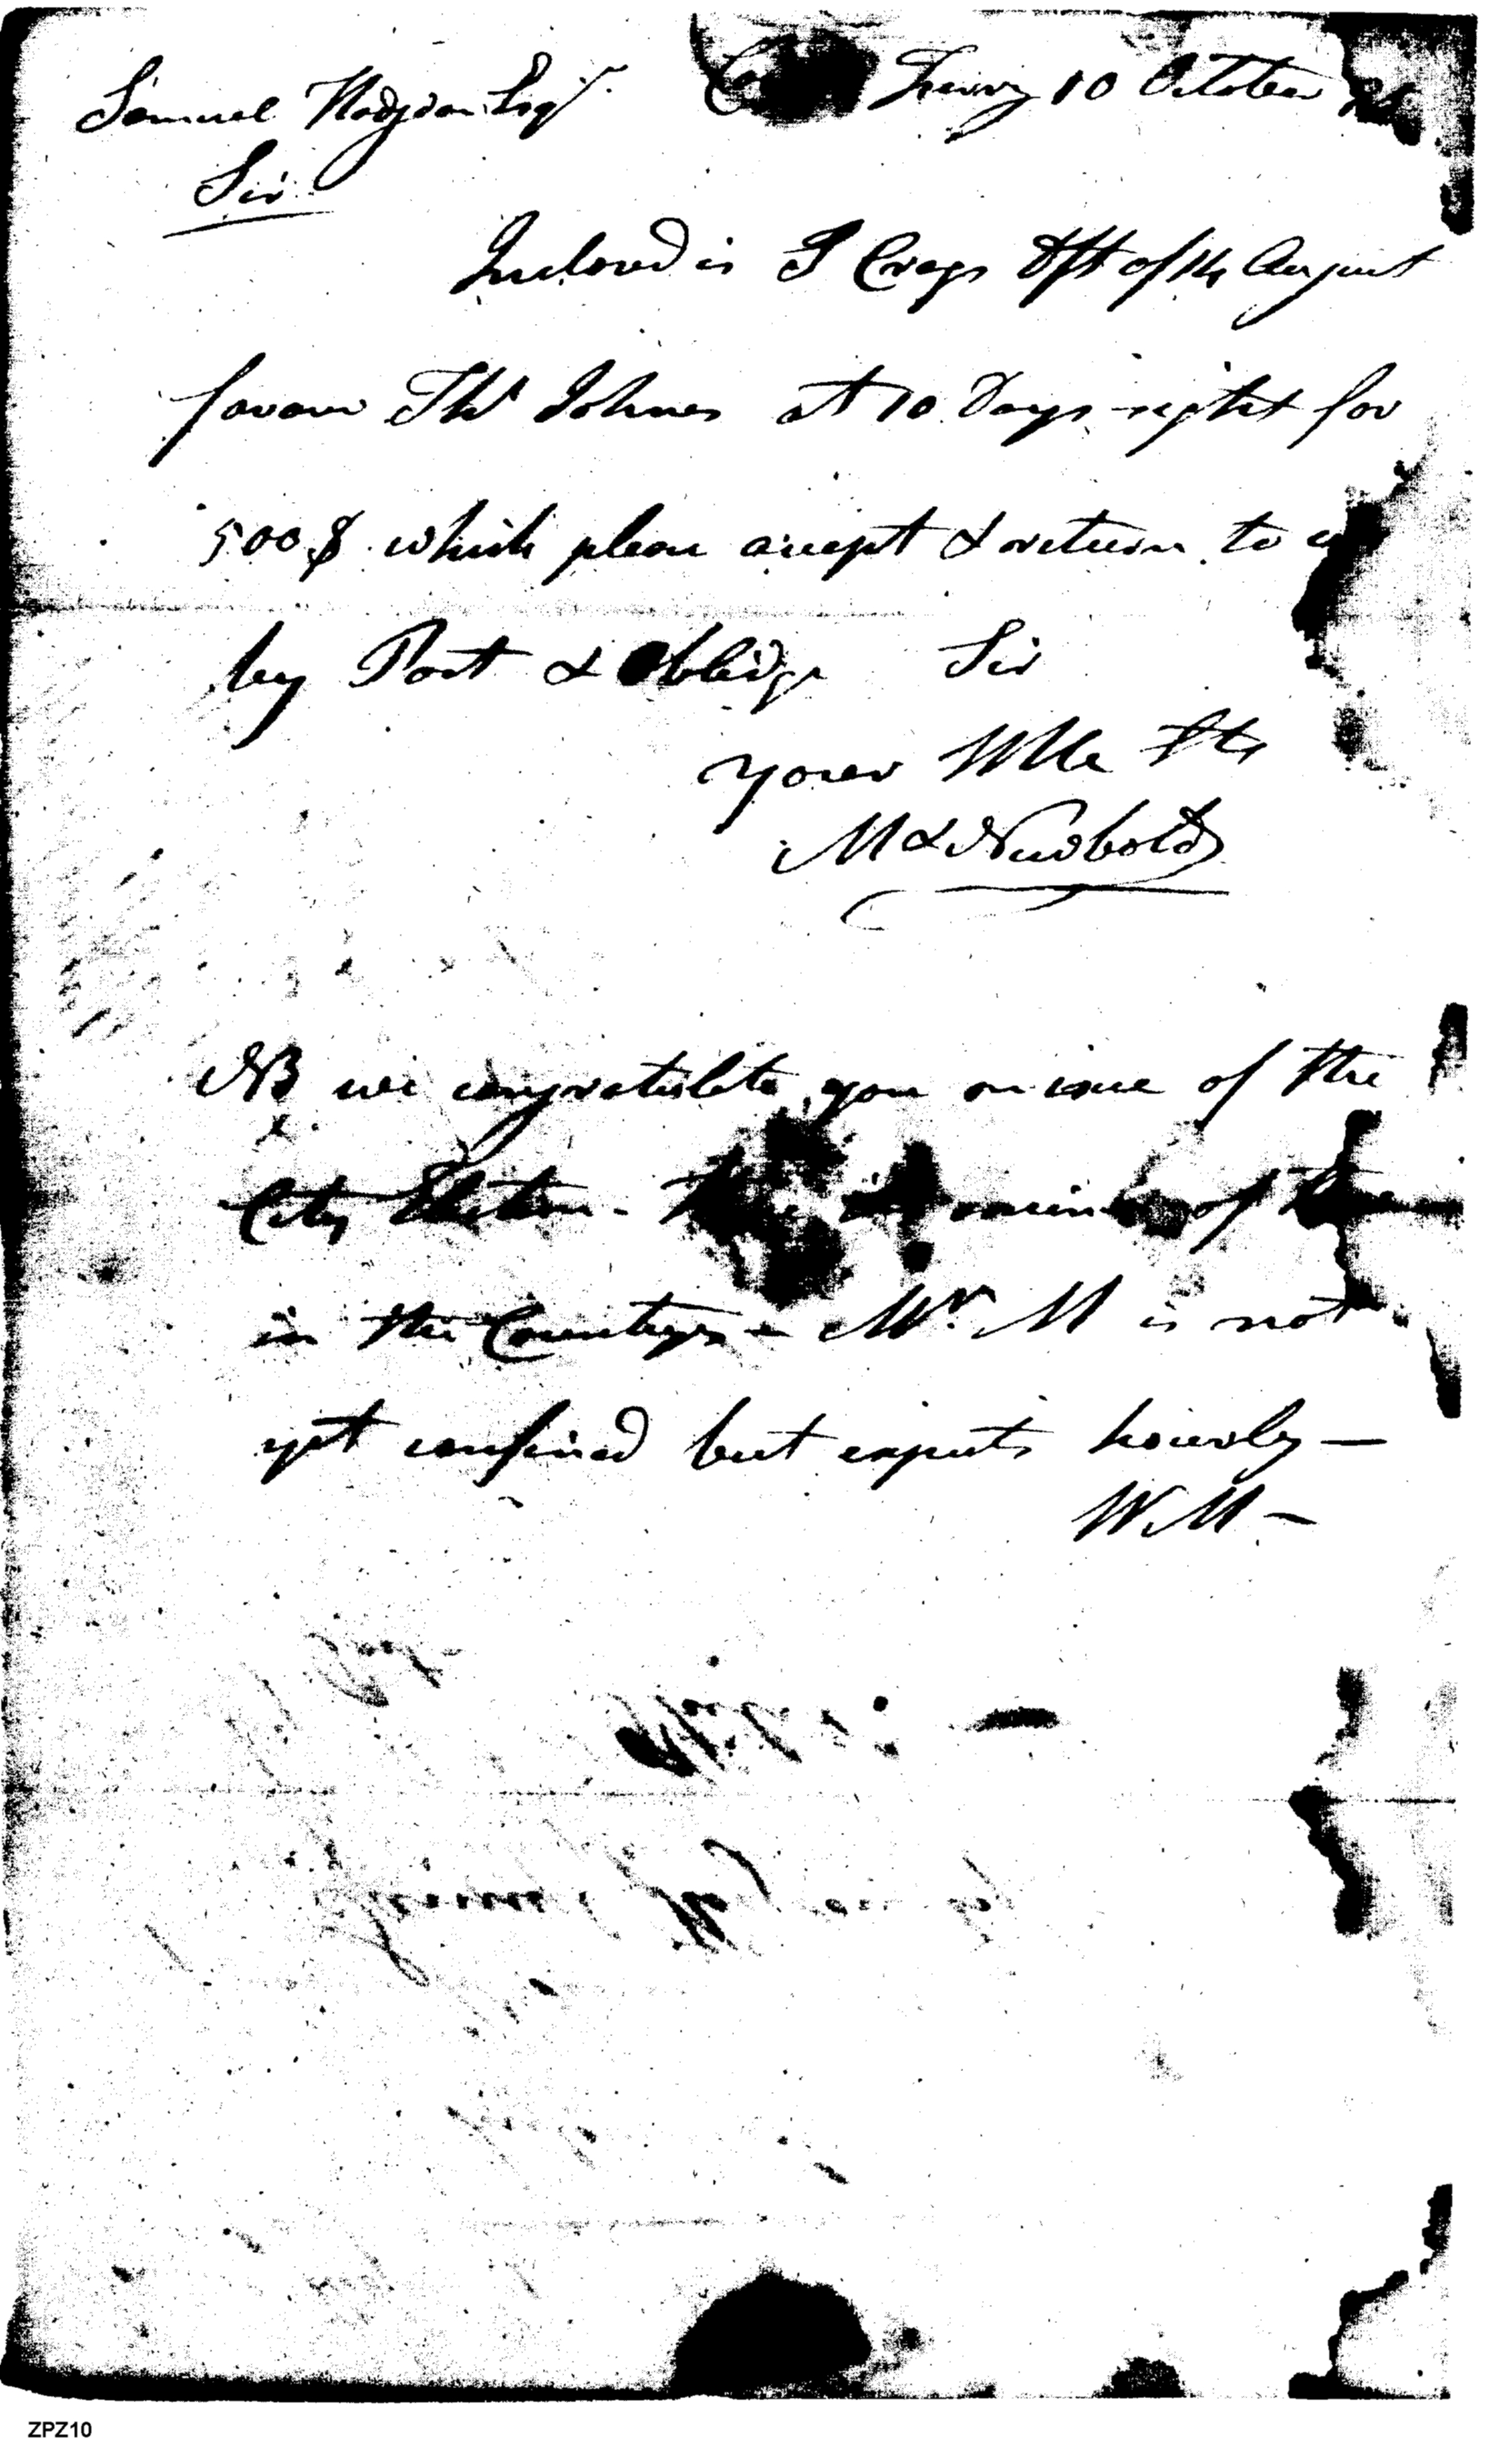 Samuel Hodgdon Esqr.
Ferry 10 October
Sir
Inclosed is I Crags Dft of 14 August
favour Thos Johnes at 10 Days sight for
500 $ which please accept & return to us
by Post & Oblidge Sir
your Hble Sts
M & Newbold
NB we congratulate you on issue of the
City Election - of
in the Country - Mrs. M is not
yet confined but expects hourly —
WM —
ZPZ10